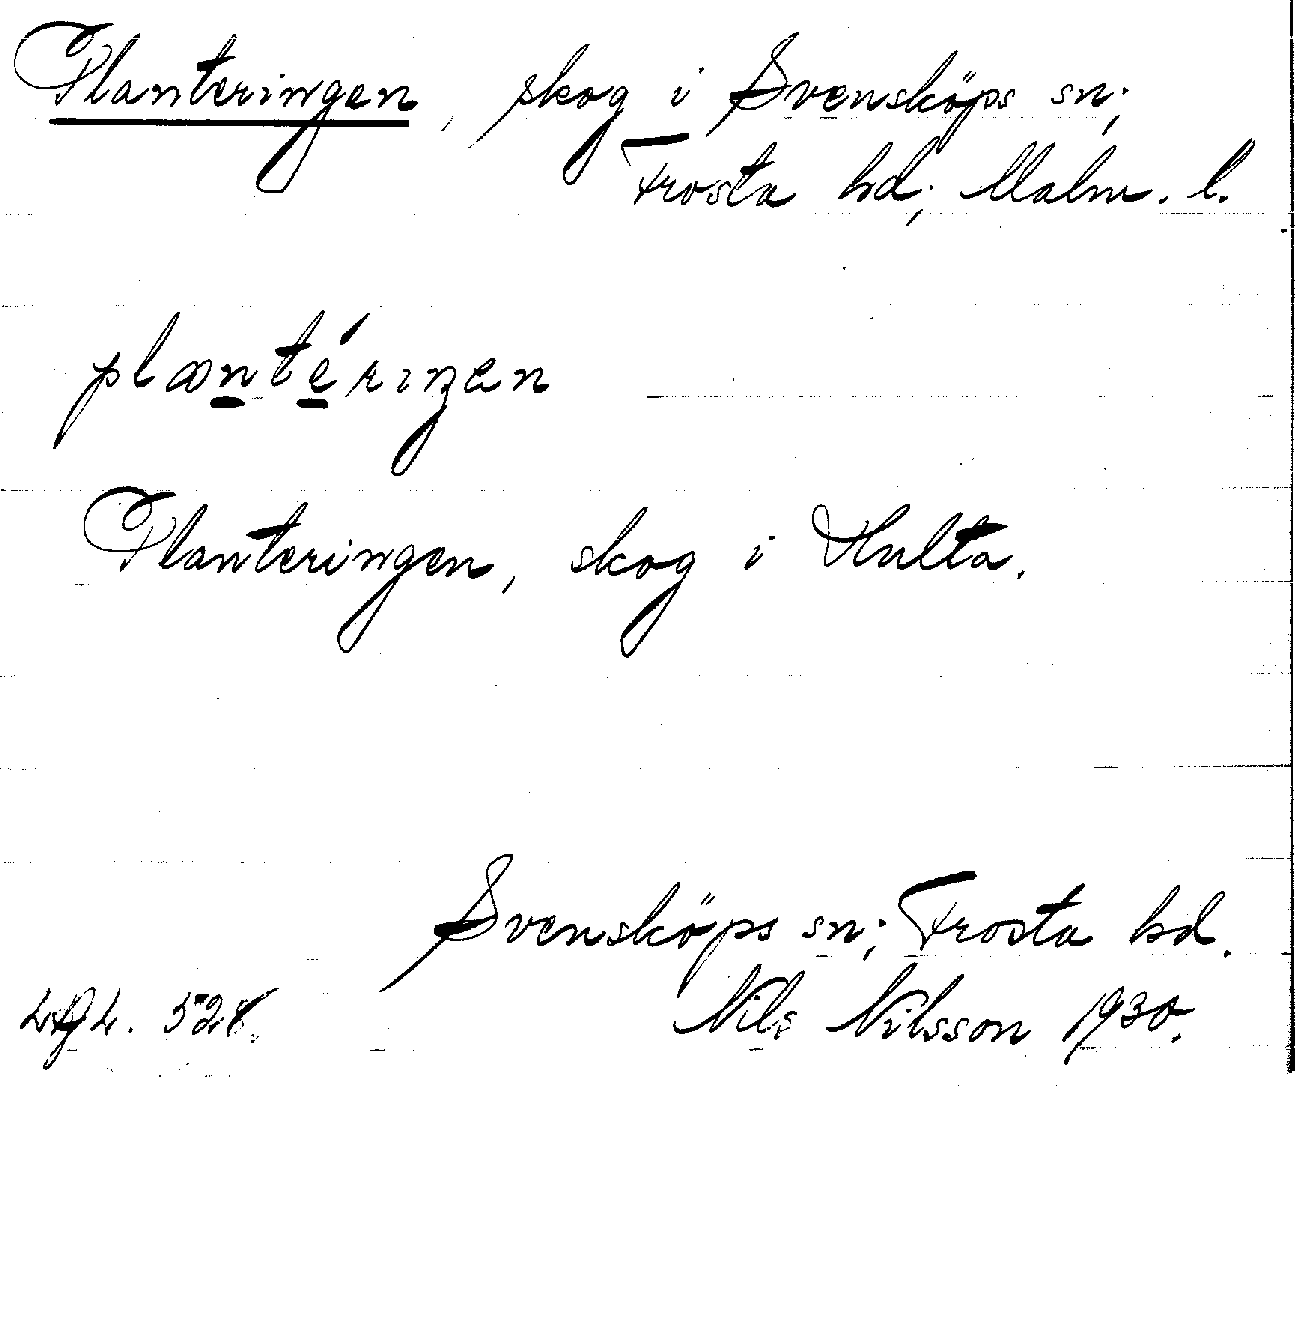 Planteringen, skog i Svensköps sn;
Frosta hd; Malm. l.
plantéringen
Planteringen, skog i Hulta.
Svensköps sn; Frosta hd.
Nils Nilsson 1930.
528.